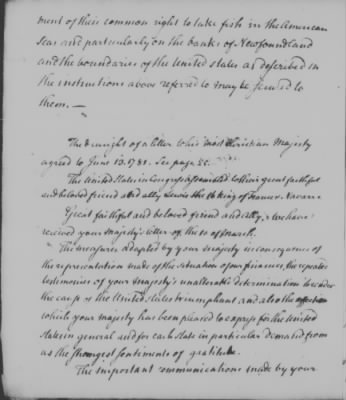 ment of their common right to take fish in the American
Seas and particularly on the banks of Newfoundland
and the boundaries of the United States as described in
the instructions above referred to may be secured to
them. —
The draught of a letter to his most Christian Majesty
agreed to June 13. 1781. See page 55.
The United States in Congress assembled to their great faithful
and beloved friend and ally Lewis the king of France & Navarre
Great faithful and beloved friend and ally, We have
received your Majesty's letter of the 10 of March.
The measures adopted by your Majesty in consequence of
the representation made of the situation of our finances, the repeated
testimonies of your Majesty's unalterable determination to render
the cause of the United States triumphant and also the affection
which your majesty has been pleased to express for the United
States in general and for each State in particular demand from
us the strongest sentiments of gratitude.
The important communications made by your